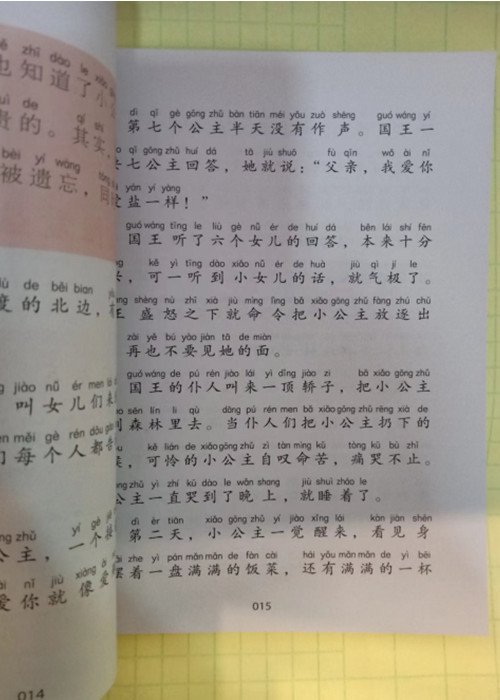 zhī dào le xiǎo
也知道了小
de qí shí
贵的。其实,
bèi yí wàng
被遗忘,同
de běi bian
度的北边,
jiào nǚ ér men
叫女儿们来
měi gè rén dōu
们每个人都
zhǔ yí gè
公主,一个接
nǐ jiù xiàng ài
爱你就像爱
014
dì qī gè gōng zhǔ bàn tiān méi yǒu zuò shēng guó wáng yí
第七个公主半天没有作声。国王一
qī gōng zhǔ huí dá tā jiù shuō fù qīn wǒ ài nǐ
七公主回答,她就说:“父亲,我爱你
yán yí yàng
爱盐一样!”
guó wáng tīng le liù gè nǚ ér de huí dá běn lái shí fēn
国王听了六个女儿的回答,本来十分
kě yì tīng dào xiǎo nǚ ér de huà jiù qì jí le
,可一听到小女儿的话,就气极了。
shèng nù zhī xià jiù mìng lìng bǎ xiǎo gōng zhǔ fàng zhú chū
王盛怒之下就命令把小公主放逐出
zài yě bú yào jiàn tā de miàn
再也不要见她的面。
guó wáng de pú rén jiào lái yì dǐng jiào zi bǎ xiǎo gōng zhǔ
国王的仆人叫来一顶轿子,把小公主
sēn lín lǐ qù dāng pú rén men bǎ xiǎo gōng zhǔ rēng xià de
到森林里去。当仆人们把小公主扔下的
kě lián de xiǎo gōng zhǔ zì tàn mìng kǔ tòng kū bù zhǐ
,可怜的小公主自叹命苦,痛哭不止。
zhǔ yì zhí kū dào le wǎn shang jiù shuì zháo le
公主一直哭到了晚上,就睡着了。
dì èr tiān xiǎo gōng zhǔ yí jiào xǐng lái kàn jiàn shēn
第二天,小公主一觉醒来,看见身
zhe yì pán mǎn mǎn de fàn cài hái yǒu mǎn mǎn de yì bēi
摆着一盘满满的饭菜,还有满满的一杯
015